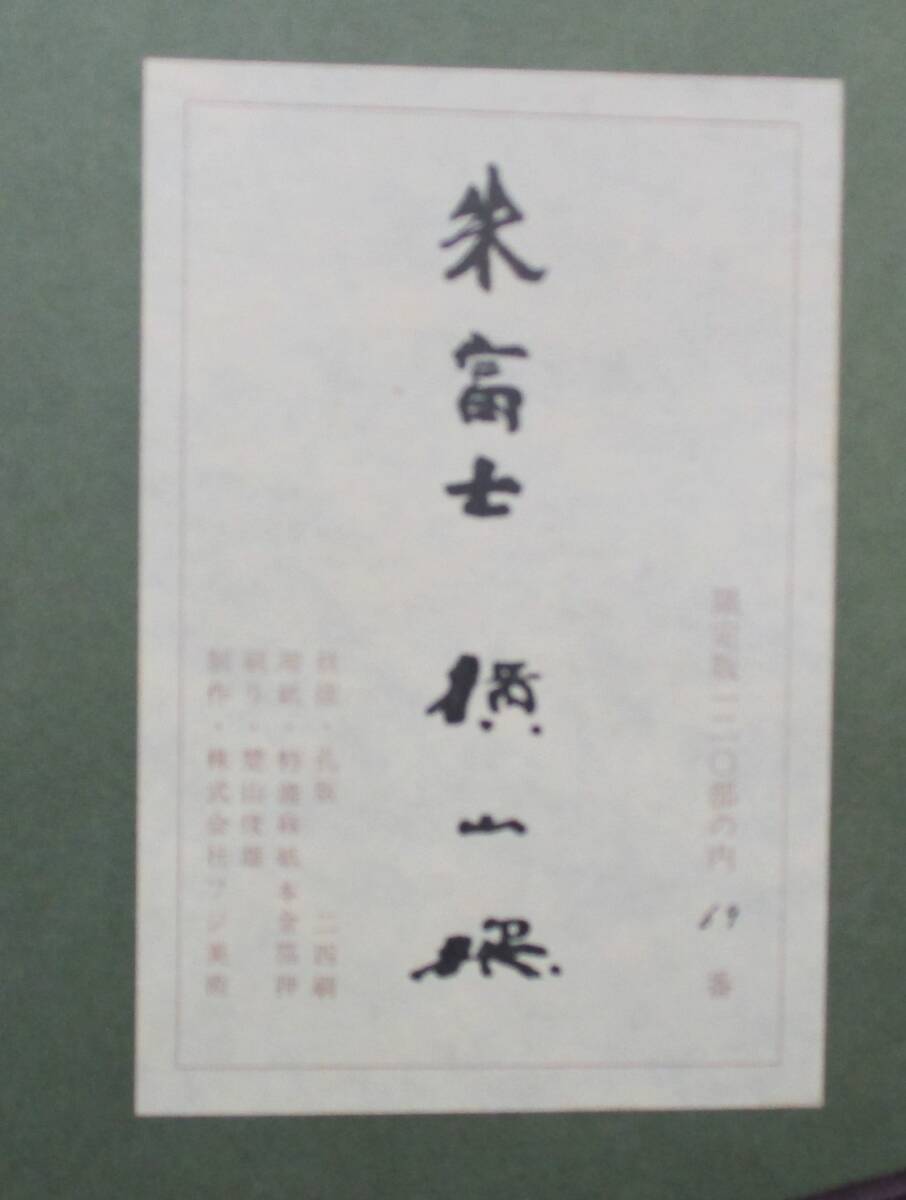 限定版一二〇部の内 69 番
朱富士 横山操
技法・孔版 二四刷
用紙・特漉麻紙本金箔押
刷り・楚山俊雄
制作・株式会社フジ美術